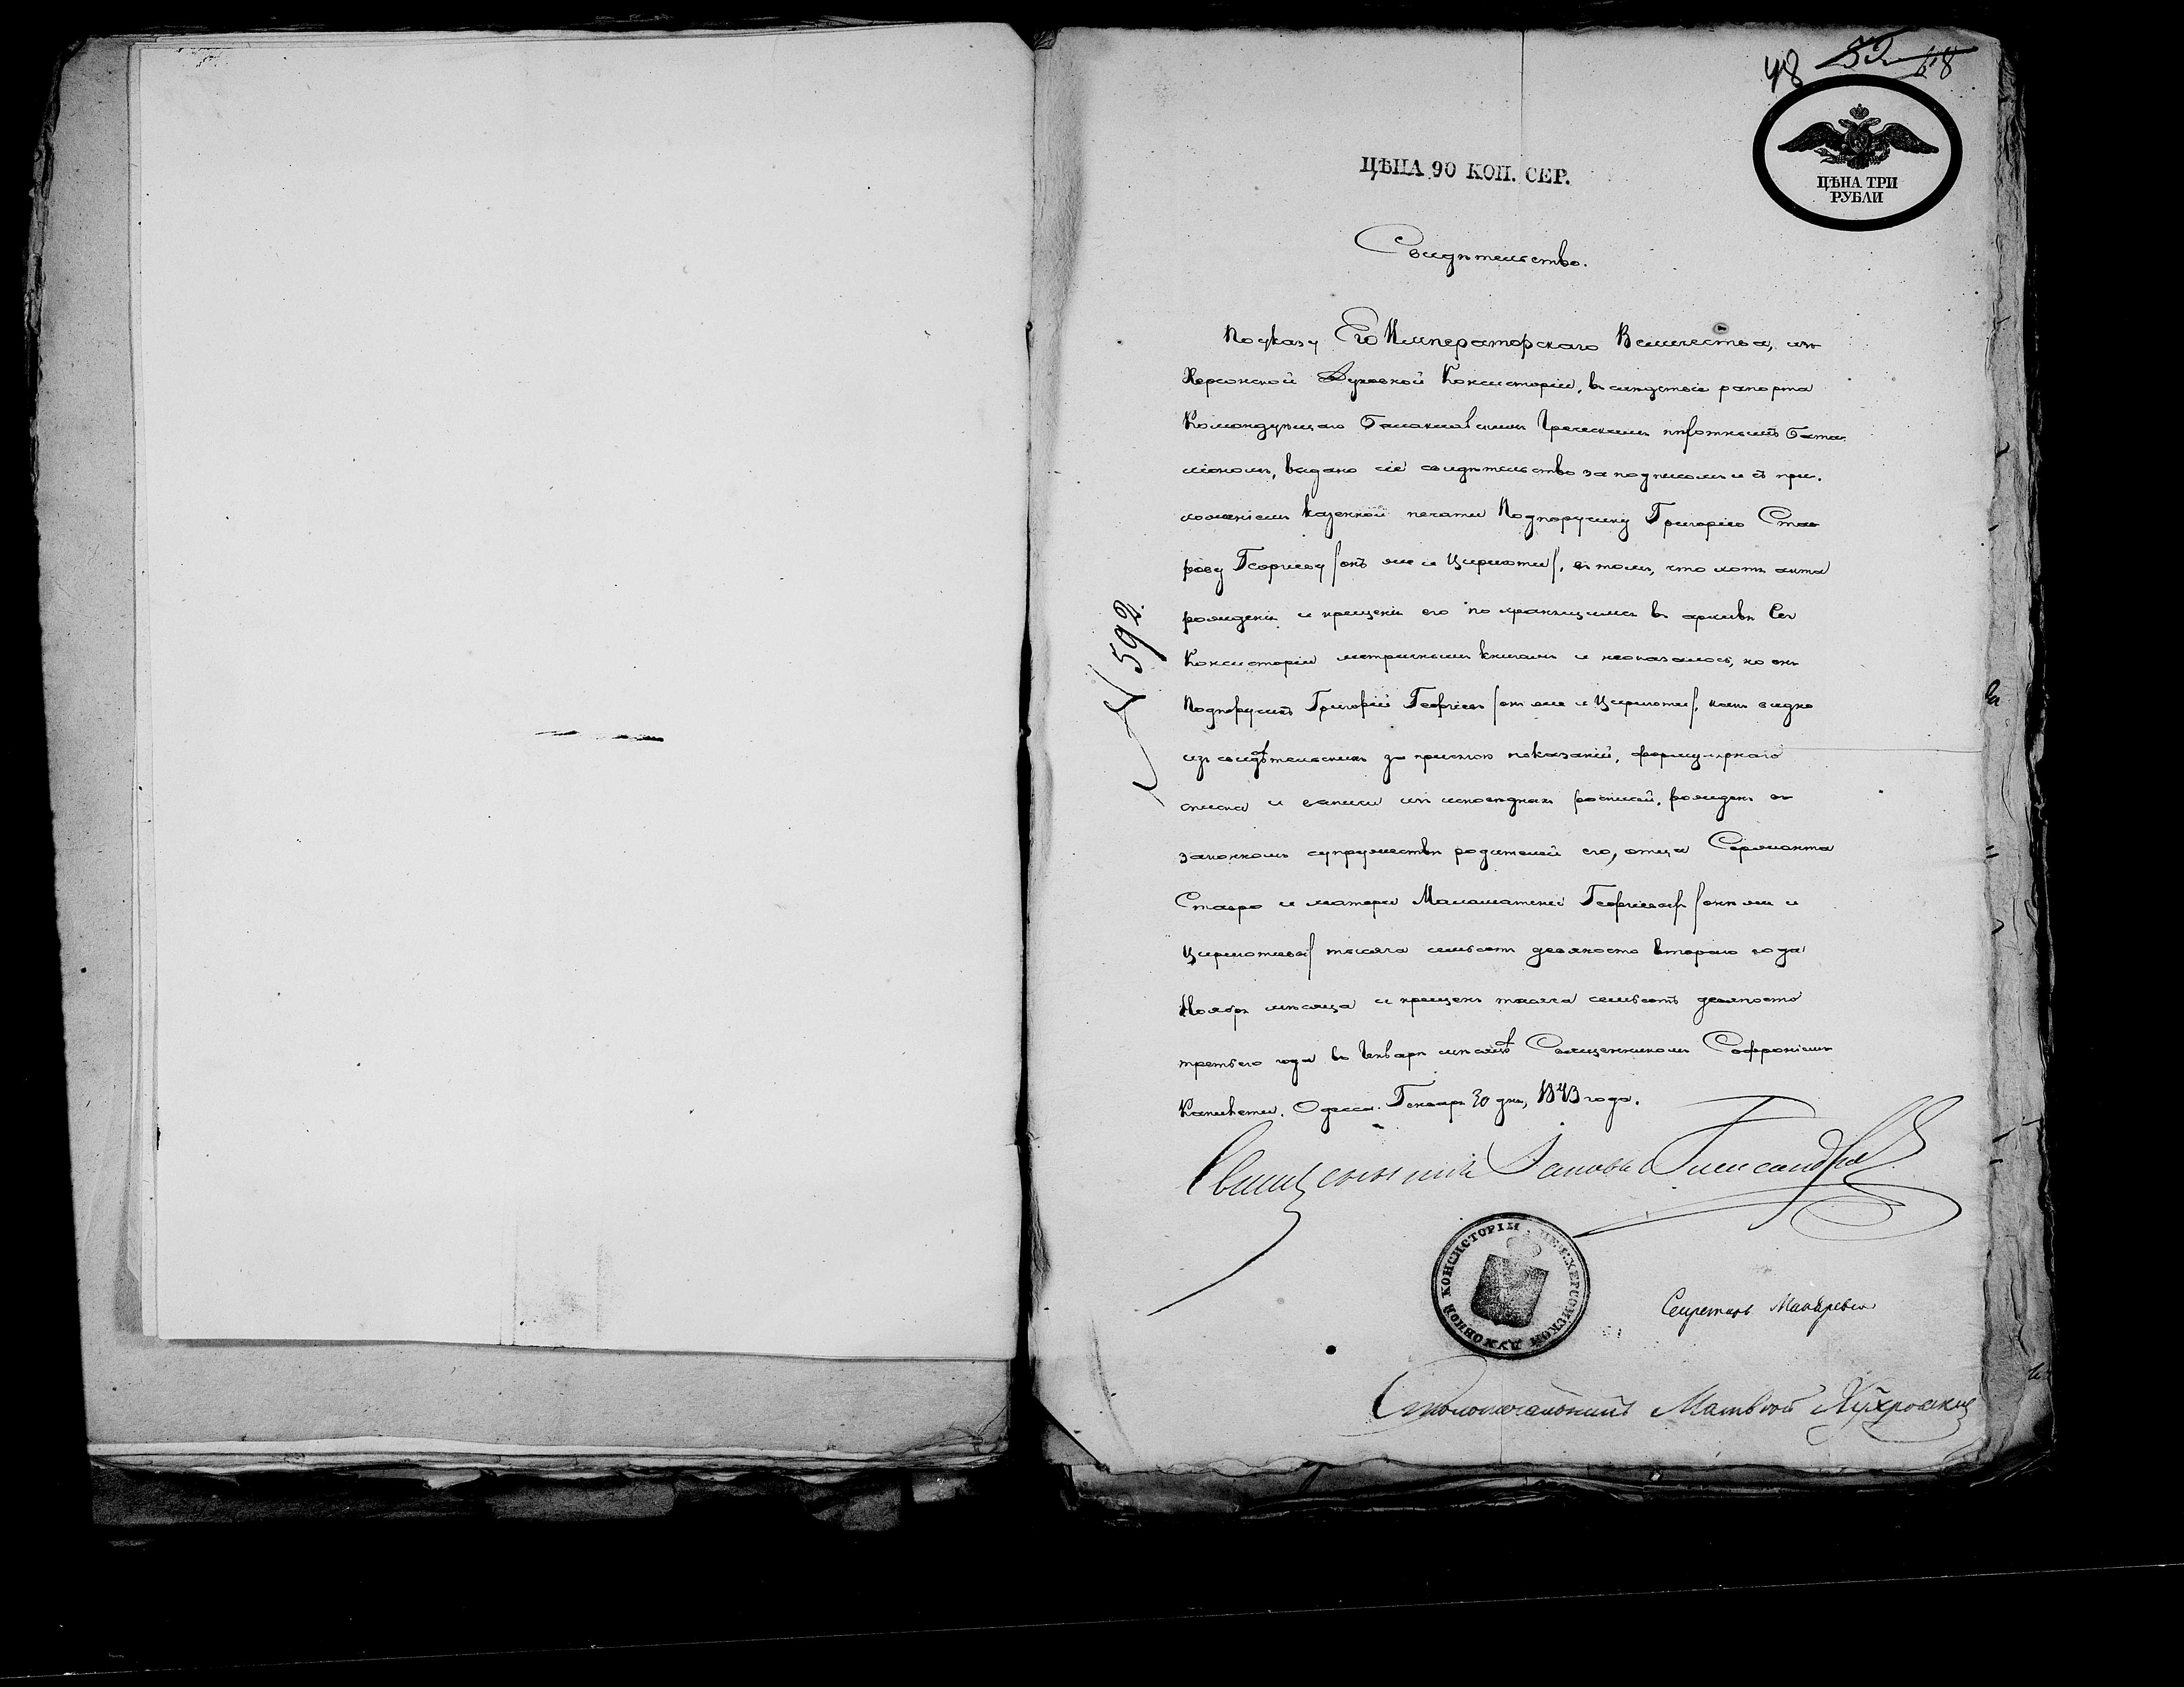 48 52 68
ЦѢНА ТРИ
РУБЛИ
ЦѢНА 90 КОП. СЕР.
Свидѣтельство.
По указу Его Императорскаго Величества, изъ
Херсонской Духовной Консисторіи, въ слѣдствіе рапорта
Командующаго Балаклавскимъ Греческимъ пѣхотнымъ бата-
ліономъ, выдано сіе свидѣтельство за подписомъ и съ при-
ложеніемъ казенной печати Подпоручику Григорію Став-
рову Георгіеву /онъ же и Цириготи/, въ томъ, что хотя акта
рожденія и крещенія его по хранящимся въ архивѣ сей
Консисторіи метричнымъ книгамъ и неоказалось, но онъ
Подпоручикъ Григорій Георгіевъ /онъ же и Цириготи/, какъ видно
изъ свидѣтельскихъ за присягою показаній, формулярнаго
списка и выписи изъ исповѣдныхъ росписей, рожденъ въ
законномъ супружествѣ родителей его, отца Сержанта
Ставро и матери Маламатении Георгіевыхъ /онъ же и
Цириготиевы/ тысяча семьсотъ девяносто втораго года
Ноября мѣсяца и крещенъ тысяча семьсотъ девяносто
третьего года въ Январѣ мѣсяцѣ Священникомъ Софроніемъ
Одесса. Генваря 30 дня, 1843 года.
№ 592.
Священникъ Александр
ПЕЧ. ХЕРСОНСКОЙ ДУХОВНОЙ КОНСИСТОРІИ
Секретарь
Столоначальникъ Матвѣй